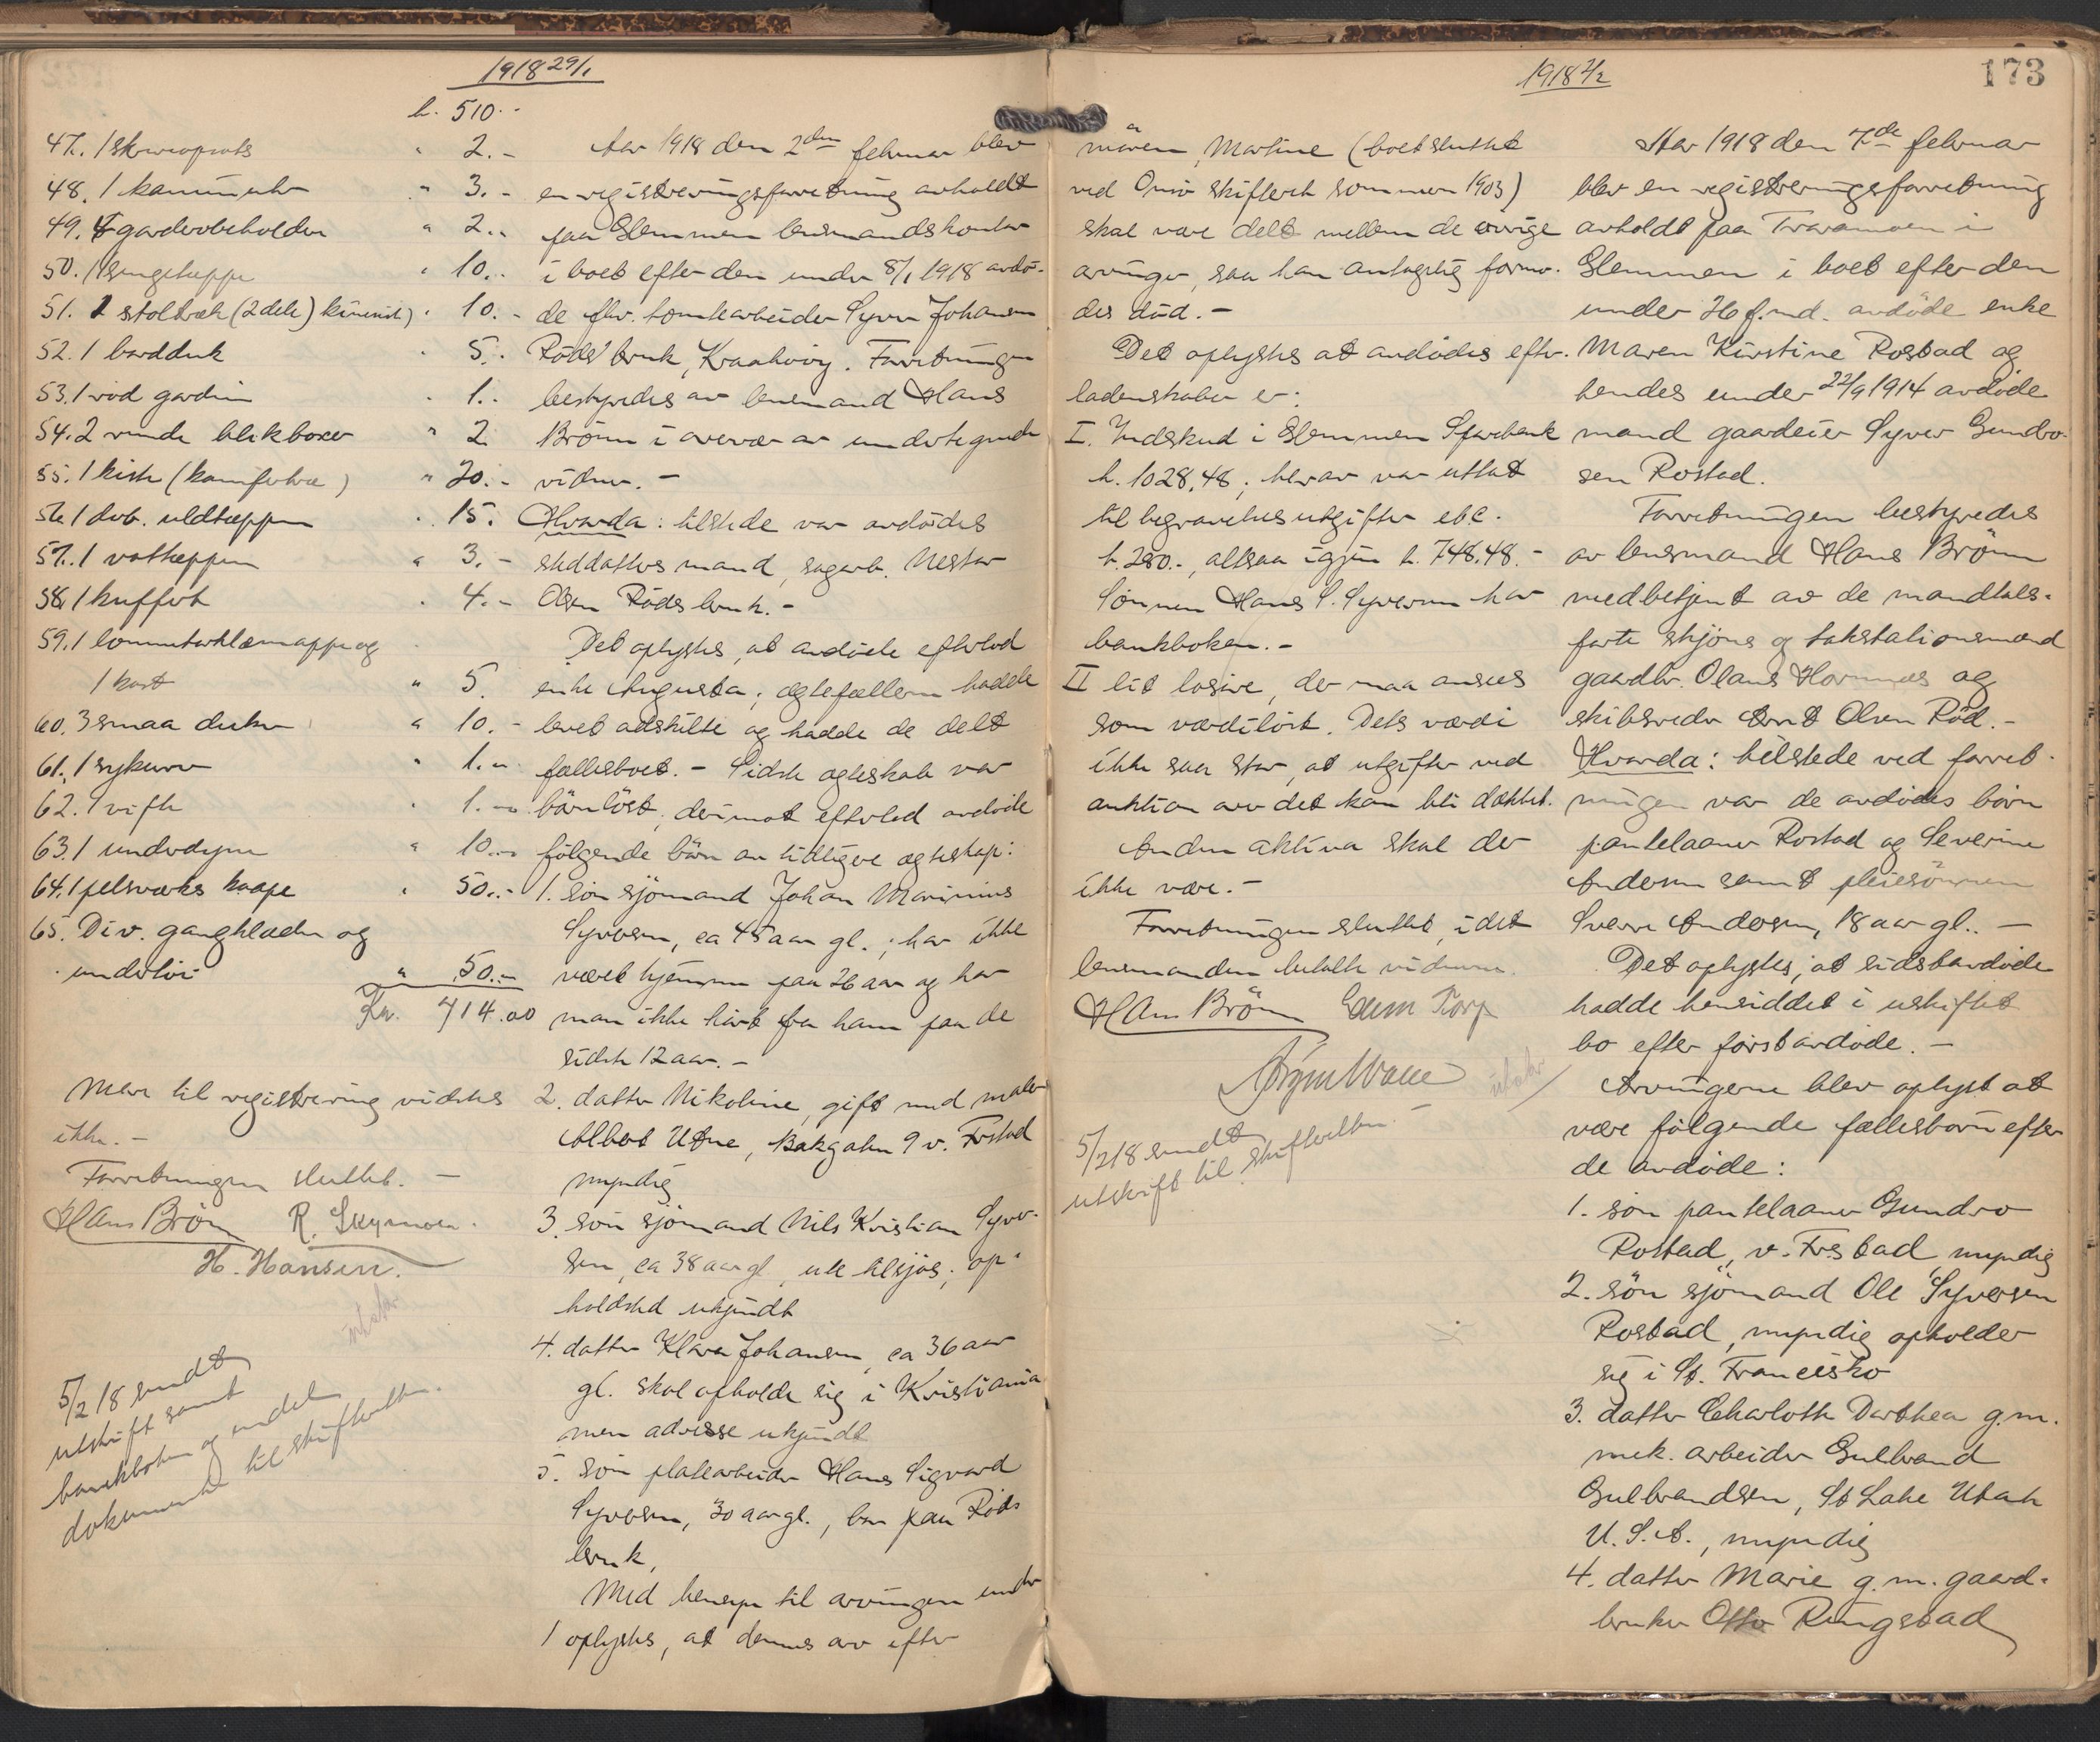 1918 29/1
h. 510.-
47. 1 skrivoprats " 2.-
48. 1 kaminuhr " 3.-
49. 4 garderobeholdere " 2.-
50. 1 sengeteppe " 10.-
51. 2 stoltræk (2 dele) kinesisk) " 10.-
52. 1 bordduk " 5.-
53. 1 rød gardin " 1.-
54. 2 runde blikboxer " 2
55. 1 kiste (kamfertræ) " 20.-
56. 1 dob. uldteppe " 15.
57. 1 vatteppe " 3.-
58. 1 kuffert " 4.-
59. 1 lommetørklemappe og
1 kost " 5.
60. 3 smaa duker " 10.-
61. 1 sykurv " 1.-
62. 1 vifte " 1.-
63. 1 underdyne " 10.-
64. 1 pelsværks kaape " 50.-
65. Div. gangklæder og
undertöi " 50.-
Kr. 714.00
Mere til registrering vidstes
ikke.-
Forretningen sluttet. -
Hans Brön R. Skymoen.
H. Hansen.
5/2 18 sendt
utskrift samt
bankboken og endel
dokumenter til skifteretten.
Aar 1918 den 2den februar blev
en registreringsforretning avholdt
paa Glemmen lensmandskontor
i boet efter den under 8/1 1918 avdö-
de fhv. tomtearbeider Syver Johansen
Röds bruk, Kraakeröy. Forretningen
bestyredes av lensmand Hans
Brönn i overvær av undertegnede
vidner. -
Hvorda: tilstede var avdödes
steddatters mand, sagarb. Nestor
Olsen Röds bruk. -
Det oplystes, at avdöde efterlod
enke Augusta; egtefællerne hadde
levet adskilte og hadde de delt
fællesboet. - Sidste egteskab var
barnlöst; derimot efterlod avdöde
fölgende börn av tidligere egteskap:
1. sön sjömand Johan Marinius
Syversen, ca 45 aar gl.; har ikke
været hjemme paa 26 aar og har
man ikke hört fra ham paa de
sidste 12 aar. -
2. datter Nikoline, gift med maler
Albert Utne, Bakgaten 9 v. Frstad
myndig
3. sön sjömand Nils Kristian Syver-
sen, ca 38 aar gl, ute tilsjös; op-
holdsted ukjendt
4. datter Klara Johansen, ca 36 aar
gl. skal opholde sig i Kristiania
men adresse ukjendt
5. sön platearbeider Hans Sigvard
Syversen, 30 aar gl., bor paa Röds
bruk,
Med hensyn til arvingen under
1 oplystes, at dennes arv efter
1918 7/2
173
moren, Martine (boet sluttet
ved Onsö skifteret sommeren 1903)
skal være delt mellem de övrige
arvinger, saa han antagelig formo-
des död. -
Det oplystes at avdödes efter-
ladenskaber er:
I. Indskud i Glemmen Sparebank
k. 1028,48; herav var uttat
til begravelsesutgifter etc.
k. 280.-, altsaa igjen k. 748.48.-
Sönnen Hans S. Syversen har
bankboken. -
II lit lösöre, der maa ansees
som værdilöst. Dets værdi
ikke saa stor, at utgifter ved
auktion over det kan bli dækket.
Anden aktiva skal der
ikke være. -
Forretningen sluttet, idet
lensmanden betalte vidnerne.
Hans Brönn Torp
5/2 18 sendt
utskrift til skifteretten.
Aar 1918 den 7de februar
blev en registreringsforretning
avholdt paa Traramoen i
Glemmen i boet efter den
under 26 f.md. avdöde enke
Maren Kirstine Rostad og
hendes under 22/9 1914 avdöde
mand gaardeier Syver Gundro-
sen Rostad.
Forretningen bestyredes
av lensmand Hans Brönn
medbetjent av de mandtals-
förte skjöns og takstationsmænd
gaardbr. Olaus Hornnæs og
skibsreder Arnt Olsen Röd. -
Hvorda: tilstede ved forret-
ningen var de avdödes börn
pantelaaner Rostad og Severine
Andersen samt pleiesönnen
Sverre Andersen, 18 aar gl.. -
Det oplystes, at sidstavdöde
hadde hensiddet i uskiftet
bo efter förstavdöde. -
Arvingerne blev oplyst at
være fölgende fællesbörn efter
de avdöde:
1. sön pantelaaner Gundro
Rostad, v. Frstad, myndig
2. sön sjömand Ole Syversen
Rostad, myndig opholder
sig i St. Francisko
3. datter Charlotte Dorthea g.m.
mek. arbeider Gulbrand
Gulbrandsen, St Lake Utah
U. S. A., myndig
4. datter Marie g. m. gaard-
bruker Otto Ringstad